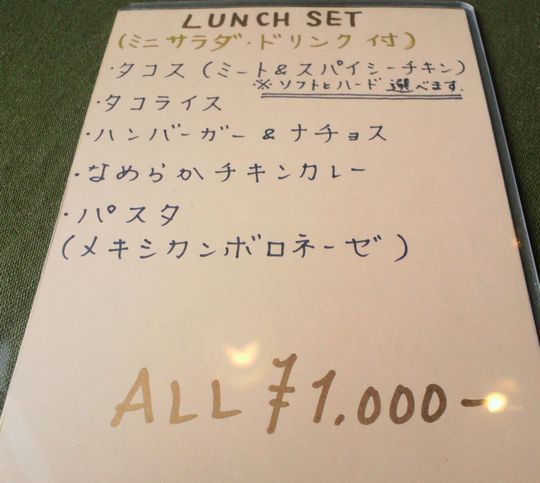 LUNCH SET
(ミニサラダ・ドリンク付)
・タコス (ミート&スパイシーチキン)
※ソフトとハード選べます.
・タコライス
・ハンバーガー&ナチョス
・なめらかチキンカレー
・パスタ
(メキシカンボロネーゼ)
ALL ¥1.000-